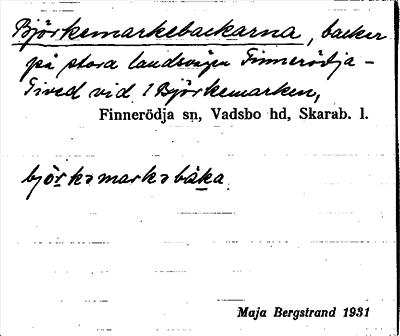 Björkemarkebackarna, backar
på stora landsvägen Finnerödja –
Tived vid 1 Björkemarken,
Finnerödja sn, Vadsbo hd, Skarab. l.
björkəmarkəbaka
Maja Bergstrand 1931